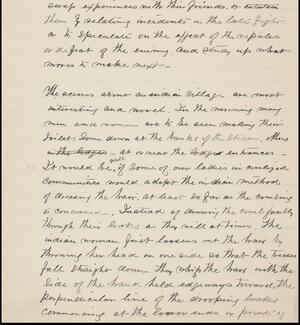 swap experiences with their friends, or entertain
them by relating incidents in the late fight
or to speculate on the effect of the repulse
or defeat of the enemy, and study up what
moves to make next —
The scenes about an indian village are most
interesting and novel. In the morning many
men and women are to be seen making their
toilet. Some down at the banks of the stream, others
in the lodges at or near the lodge entrances.
It would be well if some of our ladies in civilized
communities would adopt the indian method
of dressing the hair, at least so far as the combing
is concerned. Instead of drawing the comb forcibly
through their locks as they will at times. The
indian woman first loosens out the hair by
throwing her head on one side so that the tresses
fall straight down. They whip the hair with the
side of the hand held edgeways toward the
perpendicular line of the drooping locks
commencing at the lower ends or points of